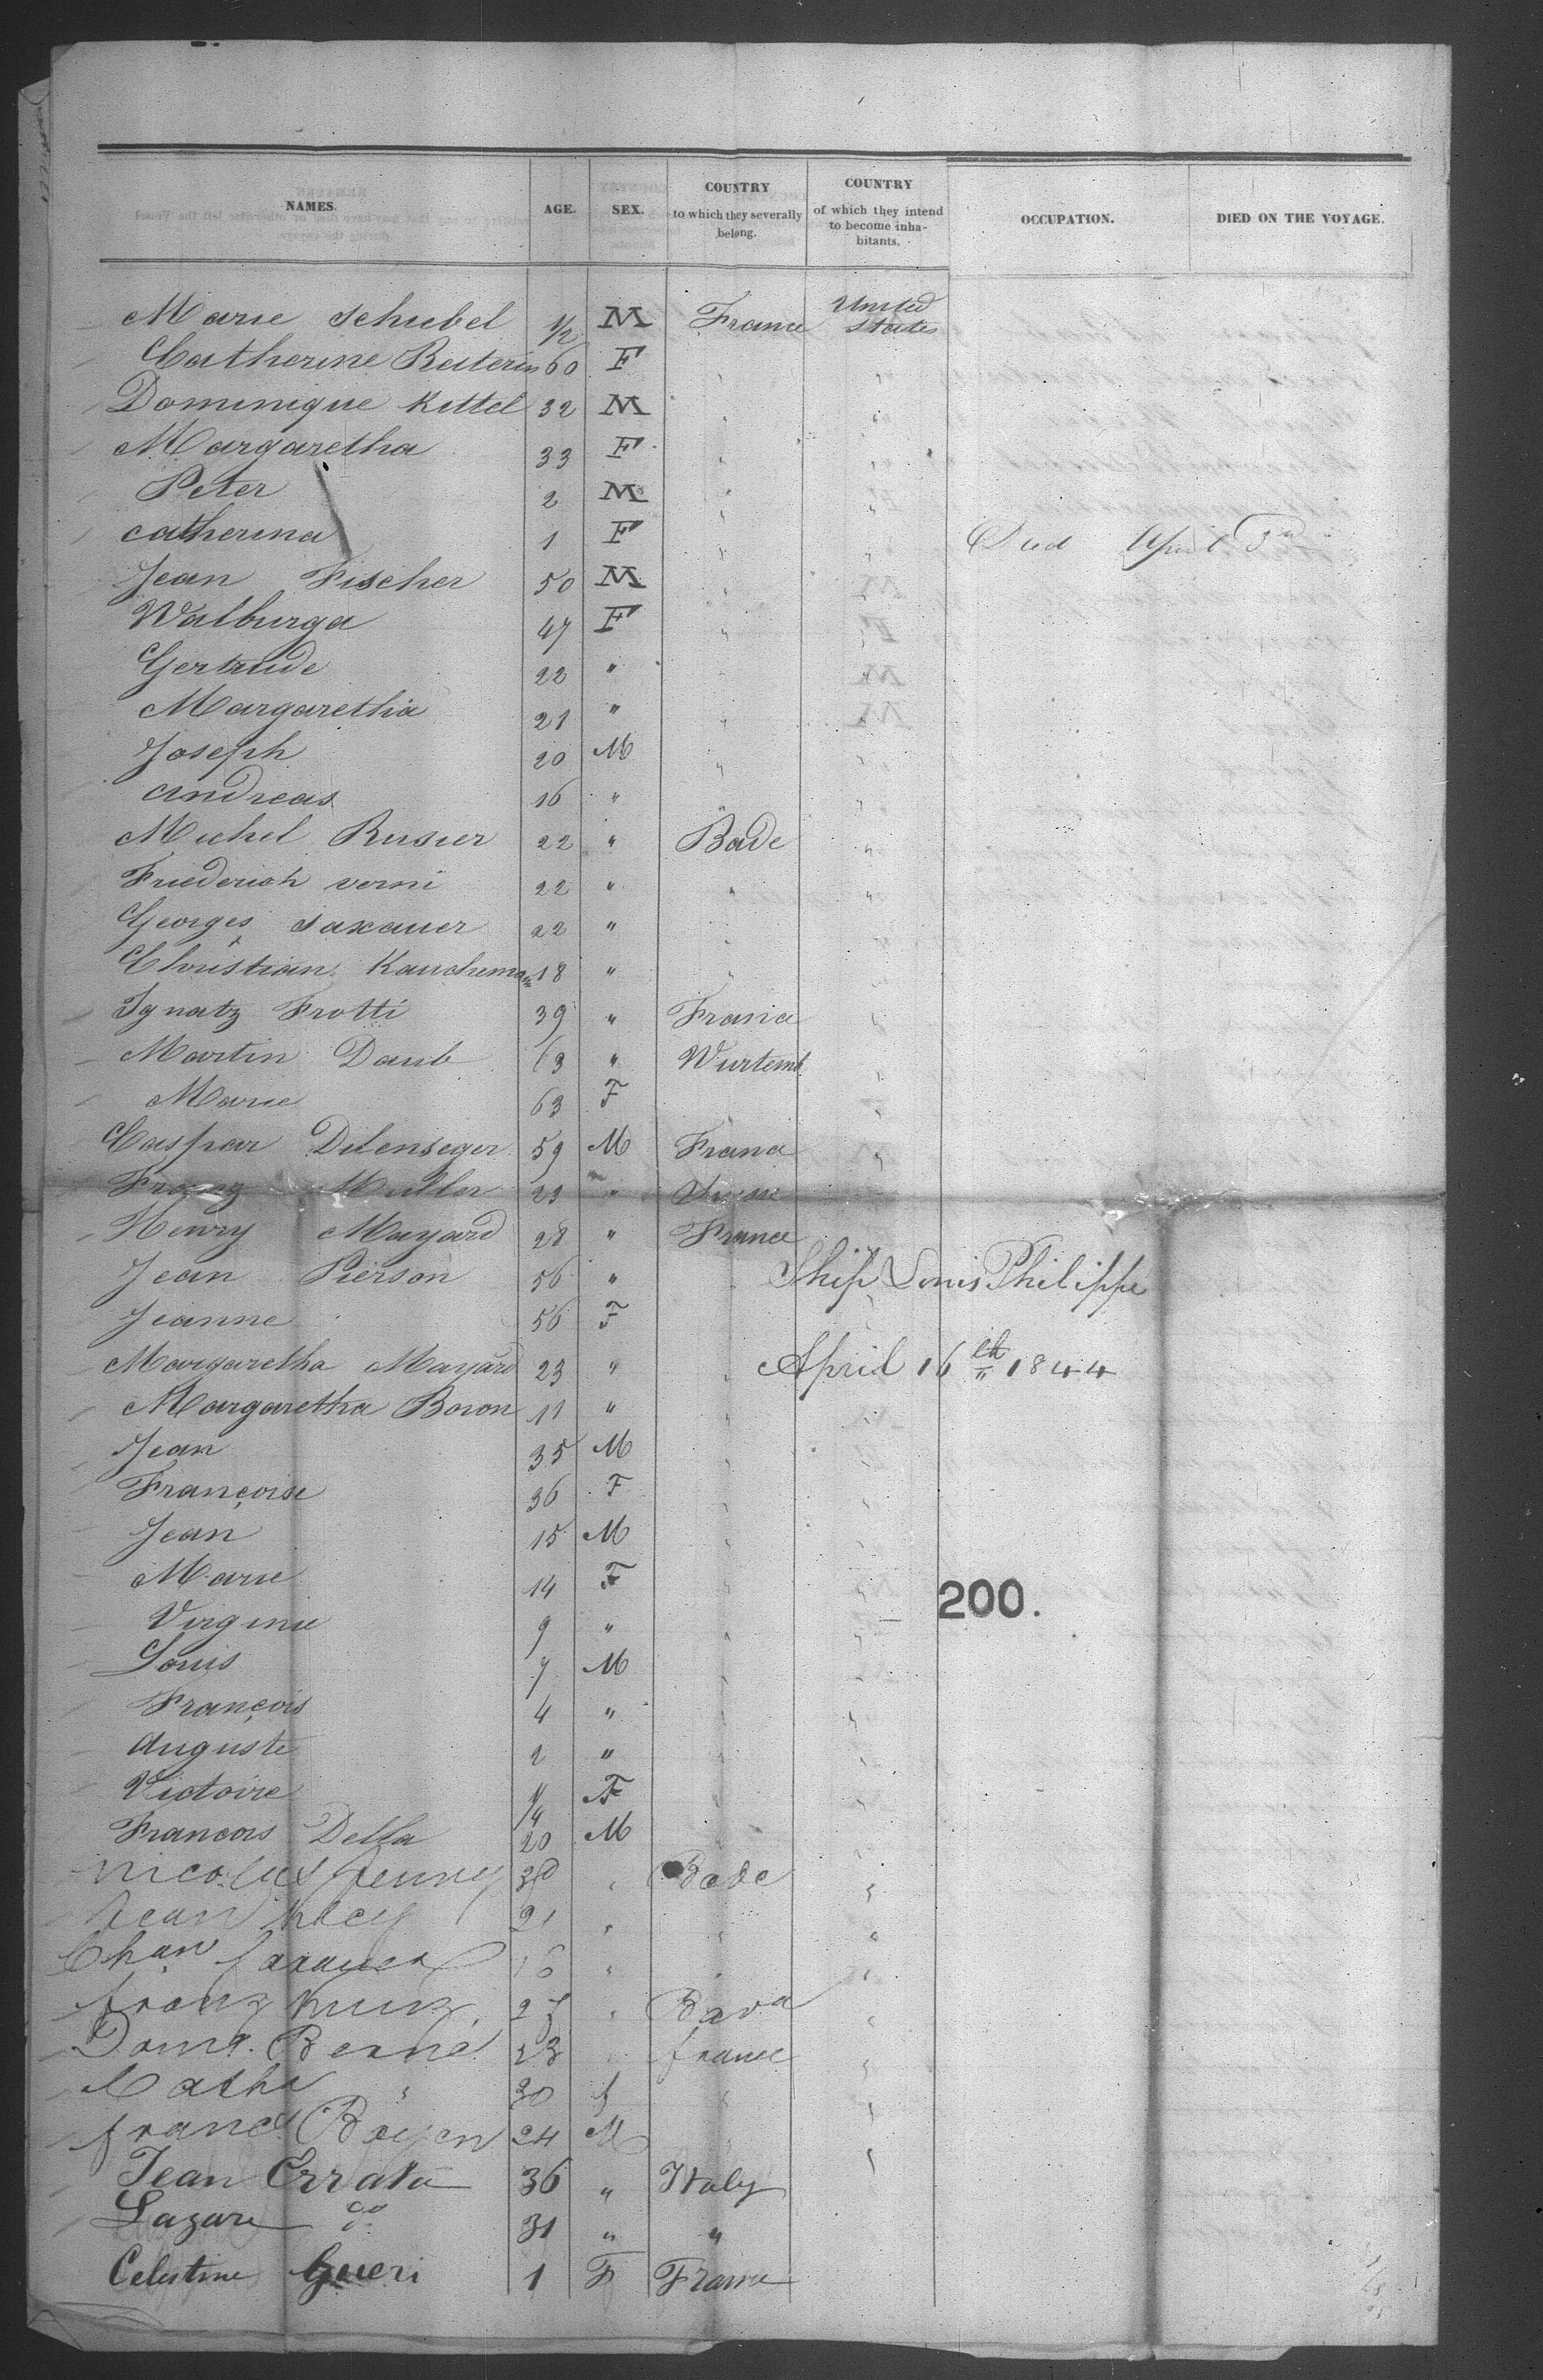 NAMES. AGE. SEX. COUNTRY to which they severally belong. COUNTRY of which they intend to become inhabitants. OCCUPATION. DIED ON THE VOYAGE.
Marie Schiebel 1/2 M France United States
Catherine Reiterin 60 F " "
Dominique Kittel 32 M " "
Margaretha 33 F " "
Peter 2 M " "
Catherina 1 F " " Died April 3rd
Jean Fischer 50 M " "
Walburga 47 F " "
Gertrude 22 " " "
Margaretha 21 " " "
Joseph 20 M " "
Andreas 16 " " "
Michel Rusier 22 " Bade "
Friederich Verni 22 " " "
Georges Saxauer 22 " " "
Christian Kauchemann 18 " " "
Ignatz Frotti 39 " France "
Martin Daub 63 " Wurtemb "
Marie 63 F "
Caspar Dilenseger 59 M France "
Franz Muller 23 " Suisse
Henry Mayard 28 " France
Jean Pierson 56 " " Ship Louis Philippe
Jeanne 56 F
Margaretha Mayard 23 " " April 16th 1844
Margaretha Boron 11 " " "
Jean 35 M " "
Françoise 36 F " "
Jean 15 M " "
Marie 14 F " " 200.
Virginie 9 " " "
Louis 7 M " "
François 4 " " "
Auguste 2 " " "
Victoire 1/4 F " "
Francois Della 20 M "
Nicolas Jenny 30 " Bade "
Jean 21 " " "
Chan Saxauer 18 " " "
Franz Kunz 27 " Bava "
Domq. Berné 23 " france "
Cathe " 30 f " "
francs Boyen 24 M "
Jean Errata 36 " Italy
Lazare do 31 " "
Celestine Gueri 1 F France